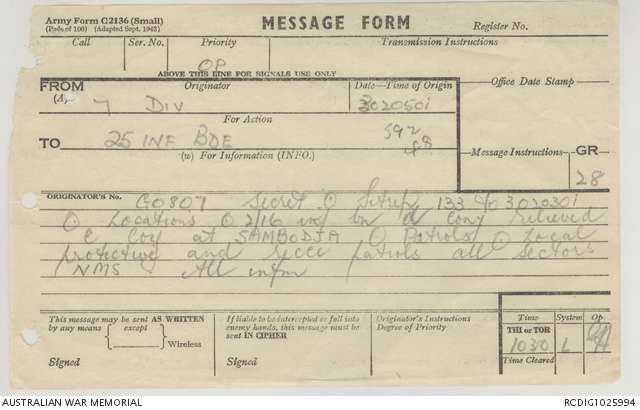 Army Form C2136 (Small)
(Pads of 100) (Adapted Sept. 1943)
MESSAGE FORM
Register No.
Call Ser. No. Priority Transmission Instructions
OP
ABOVE THIS LINE FOR SIGNALS USE ONLY
FROM Originator Date—Time of Origin Office Date Stamp
(A) 7 DIV 302050I
For Action
TO 25 INF BDE 592
(w) For Information (INFO.) 98
Message Instructions GR
28
ORIGINATOR'S No. GO807 Secret O Sitrep 133 to 302030I
O Locations O 2/16 inf bn a coy relieved
C Coy at SAMBODJA O Patrols O Local
protective and recce patrols all sectors
NMS All infm
This message may be sent AS WRITTEN
by any means except
Wireless
Signed
If liable to be intercepted or fall into
enemy hands, this message must be
sent IN CIPHER
Signed
Originator's Instructions
Degree of Priority
Time System Op.
THI or TOR
1030 L
Time Cleared
AUSTRALIAN WAR MEMORIAL RCDIG1025994